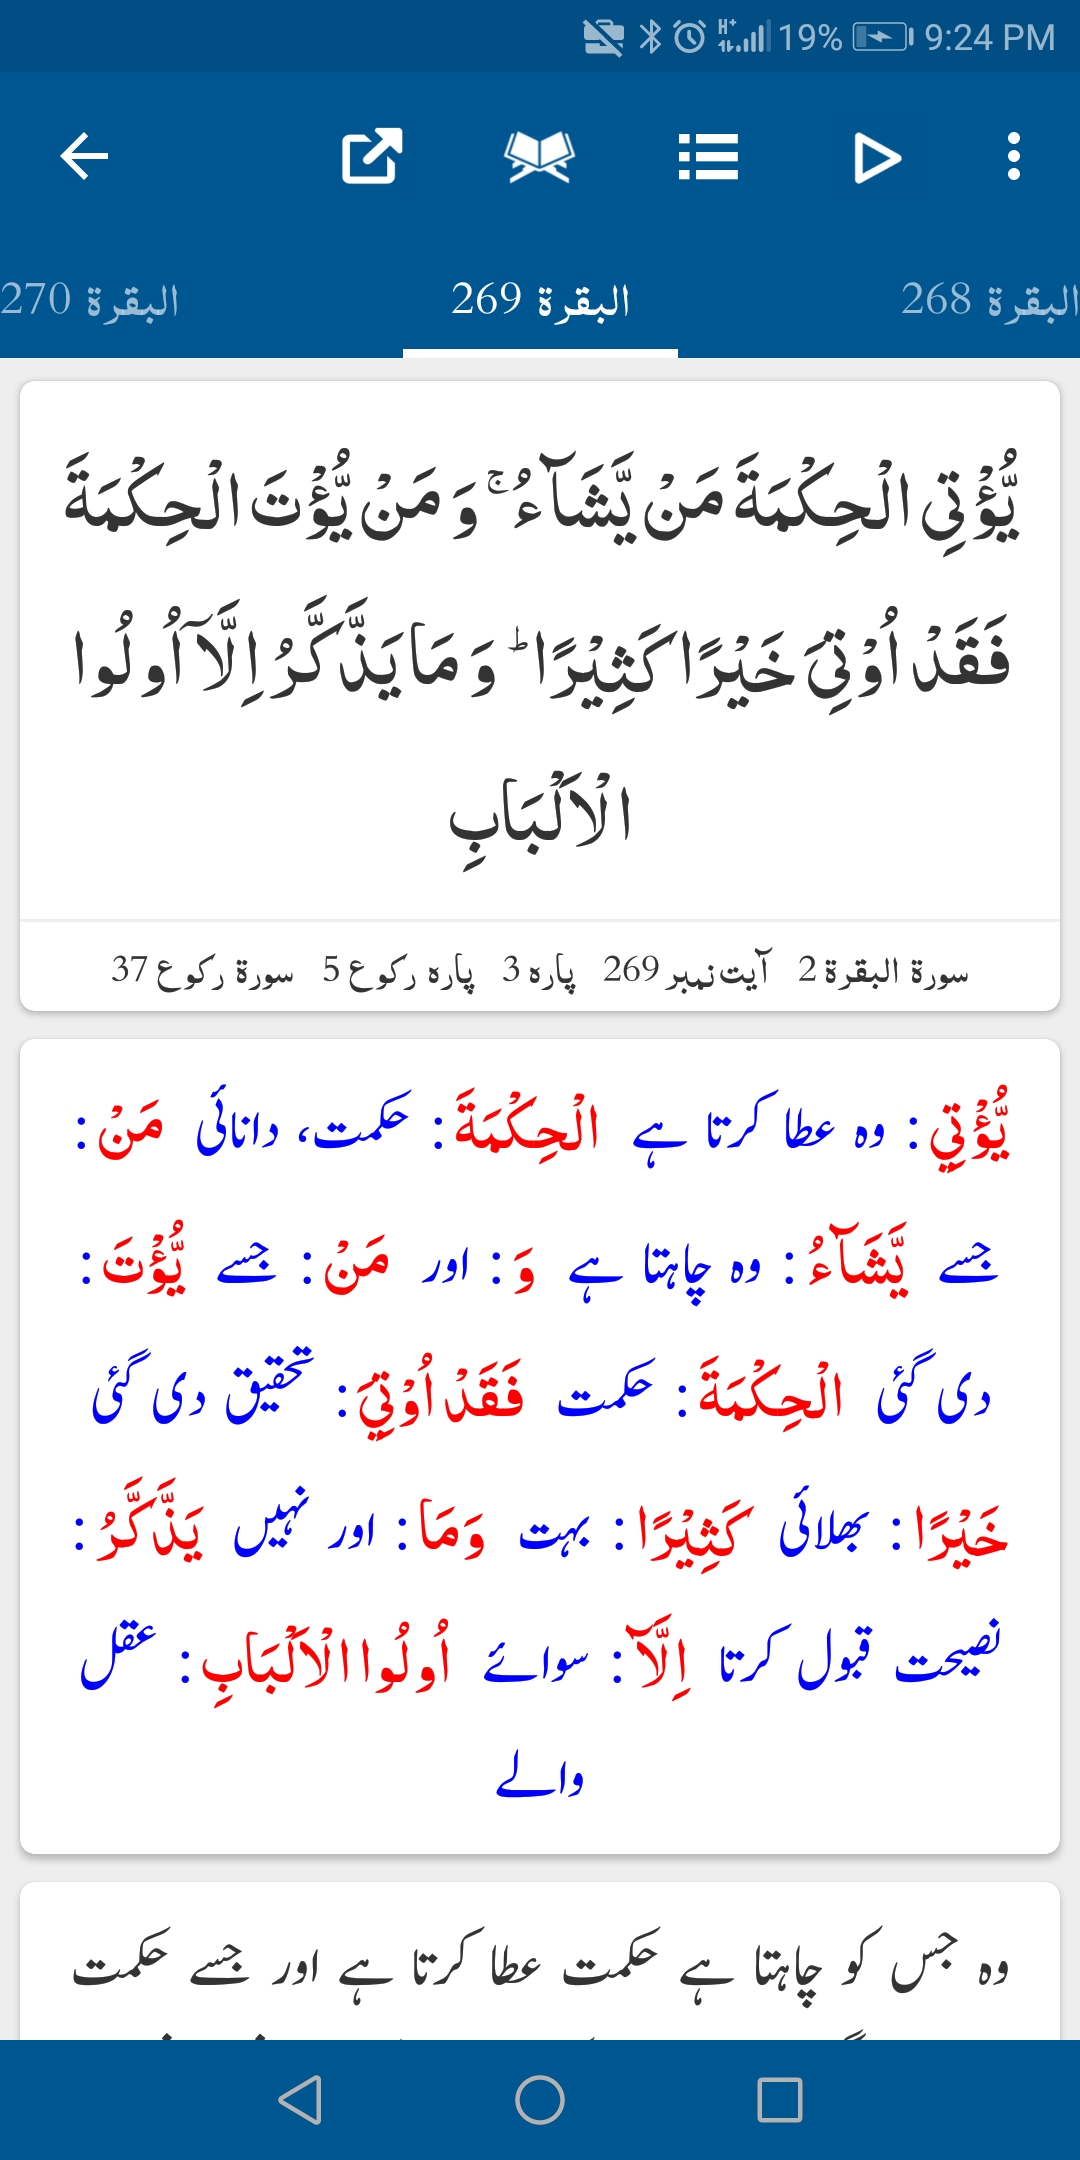 19% 9:24 PM
البقرة 268 البقرة 269 البقرة 270
يُّؤْتِي الْحِكْمَةَ مَنْ يَّشَآءُ ۚ وَ مَنْ يُّؤْتَ الْحِكْمَةَ
فَقَدْ اُوْتِيَ خَيْرًا كَثِيْرًا ؕ وَ مَا يَذَّكَّرُ اِلَّاۤ اُولُوا
الْاَلْبَابِ
سورۃ البقرۃ 2 آیت نمبر 269 پارہ 3 پارہ رکوع 5 سورۃ رکوع 37
يُّؤْتِي : وہ عطا کرتا ہے الْحِكْمَةَ : حکمت، دانائی مَنْ :
جسے يَّشَآءُ : وہ چاہتا ہے وَ : اور مَنْ : جسے يُّؤْتَ :
دی گئی الْحِكْمَةَ : حکمت فَقَدْ اُوْتِيَ : تحقیق دی گئی
خَيْرًا : بھلائی كَثِيْرًا : بہت وَمَا : اور نہیں يَذَّكَّرُ :
نصیحت قبول کرتا اِلَّاۤ : سوائے اُولُوا الْاَلْبَابِ : عقل
والے
وہ جس کو چاہتا ہے حکمت عطا کرتا ہے اور جسے حکمت